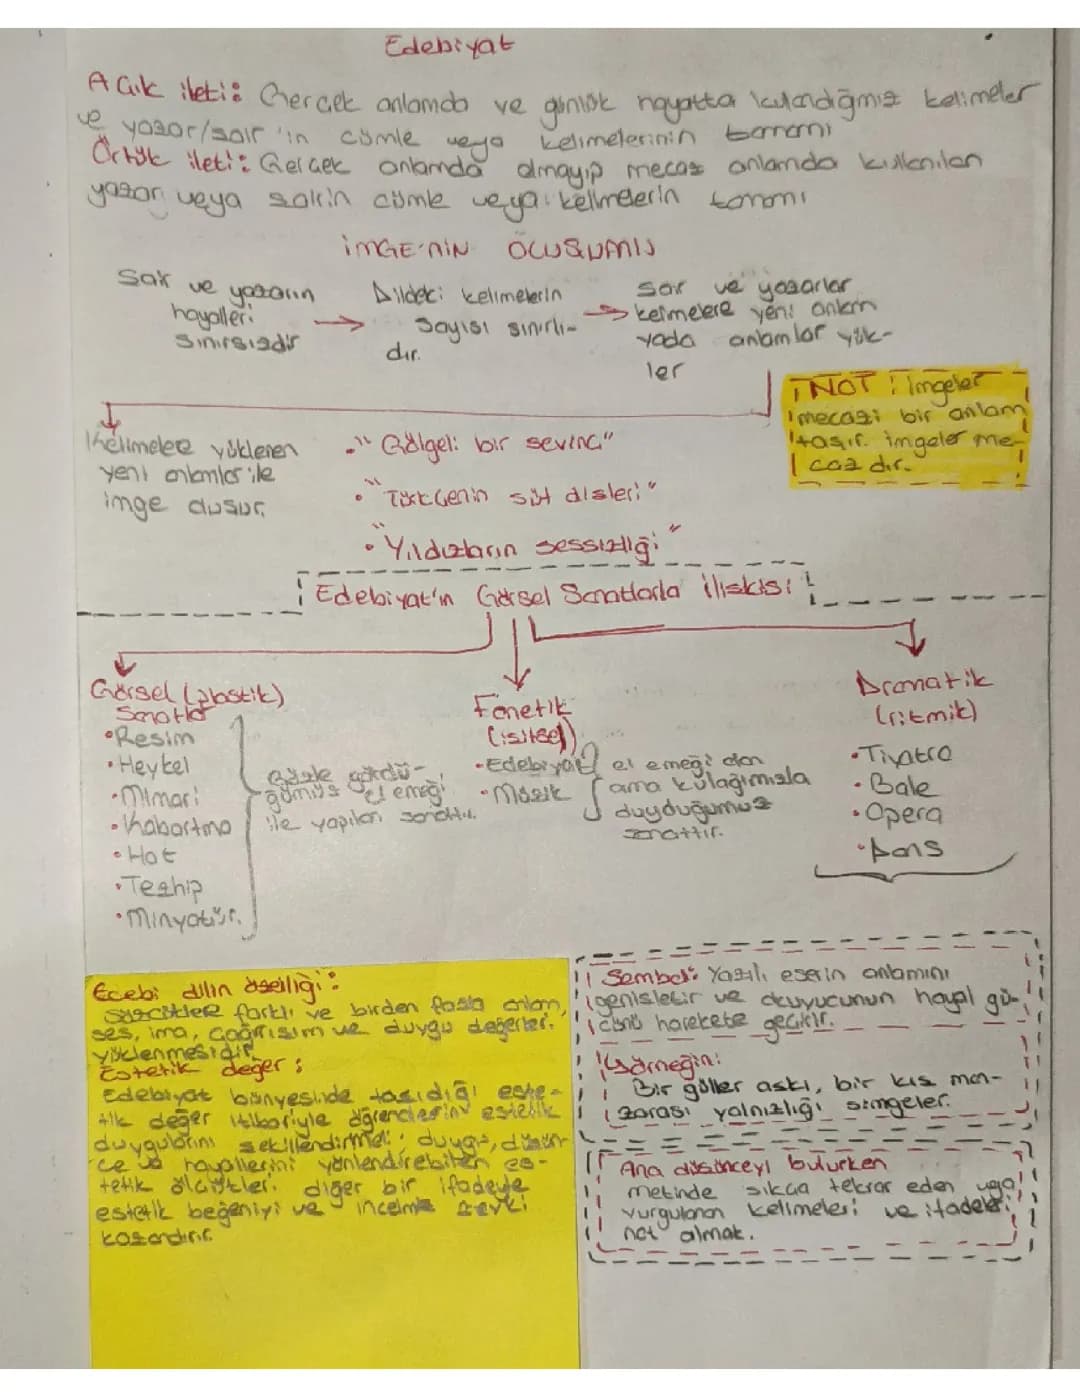 Edebiyat
Açık ileti: Gerçek anlamda ve günlük hayatta kulandığmız kelimeler
ve yazar/sair 'in cümle veya kelimelerinin tamamı
Örtük ileti: Gerçek anlamda olmayıp mecaz anlamda kullanılan
yazar veya sairin cümle veya kelimelerin tamamı
İMGE'NİN OLUSUMU
Sair ve yazarın
hayalleri
sınırsızdır
Dildeki kelimelerin
sayısı sınırlı-
dır.
sair ve yazarlar
kelimelere yeni anlam
yada anlamlar yük-
ler
NOT: imgeler
mecazi bir anlam
tasır. imgeler me-
caz dır.
Kelimelere yüklenen
yeni anlamlar ile
imge olusur.
• "Gölgeli bir sevinç"
• "Türkçenin süt disleri"
• "Yıldızların sessizliği"
Edebiyat'ın Görsel Sanatlarla iliskisi
Görsel (plastik)
Sanatlar
• Resim
• Heykel
• Mimari
• Kabartma
• Hat
• Tezhip
• Minyatür.
Gözle gördü-
ğümüz el emeği
ile yapılan sanattır.
Fonetik
(isitsel)
• Edebiyat
• Müzik
el emeği olan
ama kulağımızla
duyduğumuz
sanattır.
Dramatik
(ritmik)
• Tiyatro
• Bale
• Opera
• Dans
Edebi dilin özelliği:
Sözcüklere farklı ve birden fazla anlam,
ses, ima, çağrısım ve duygu değerler.
yüklenmesidir
Estetik değer:
Edebiyat bünyesinde tasıdığı este-
tik değer itibariyle öğrencilerin estetik
duygularını sekillendirmeli; duygu, düsün-
ce ve hayallerini yönlendirebilen es-
tetik ölçütler. diğer bir ifadeyle
estetik beğeniyi ve incelme zevki
kazandırır.
Sembol: Yazılı eserin anlamını
genisletir ve okuyucunun hayal gü-
cünü harekete geçirir.
Örneğin:
Bir güller askı, bir kıs man-
zarası yalnızlığı simgeler.
Ana düsünceyi bulurken
metinde sıkça tekrar eden
vurgulanan kelimeleri ve ifadeleri
not almak.